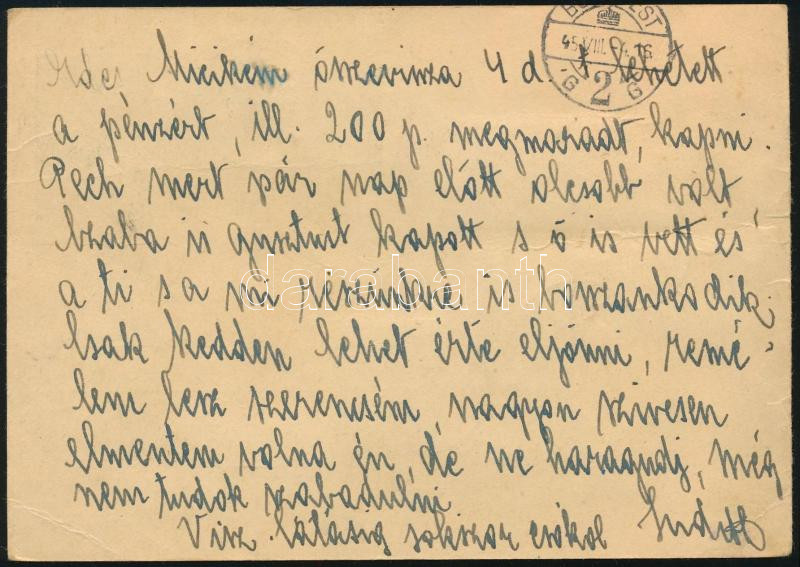 BUDAPEST
45 VIII. 16
2
G G
Édes Micikém összevissza 4 d. t lehetett
a pénzért, ill. 200 p. megmaradt, kapni.
Pech mert pár nap előtt olcsóbb volt
Csaba is gusztust kapott s ő is vett és
a ti s a mi részünkre is boszankodik,
Csak kedden lehet érte eljönni, remé-
lem lesz szerencsém, nagyon szivesen
elmentem volna én, de ne haragudj, még
nem tudok szabadulni
Visz. látásig sokszor csókol Judit
darabanth